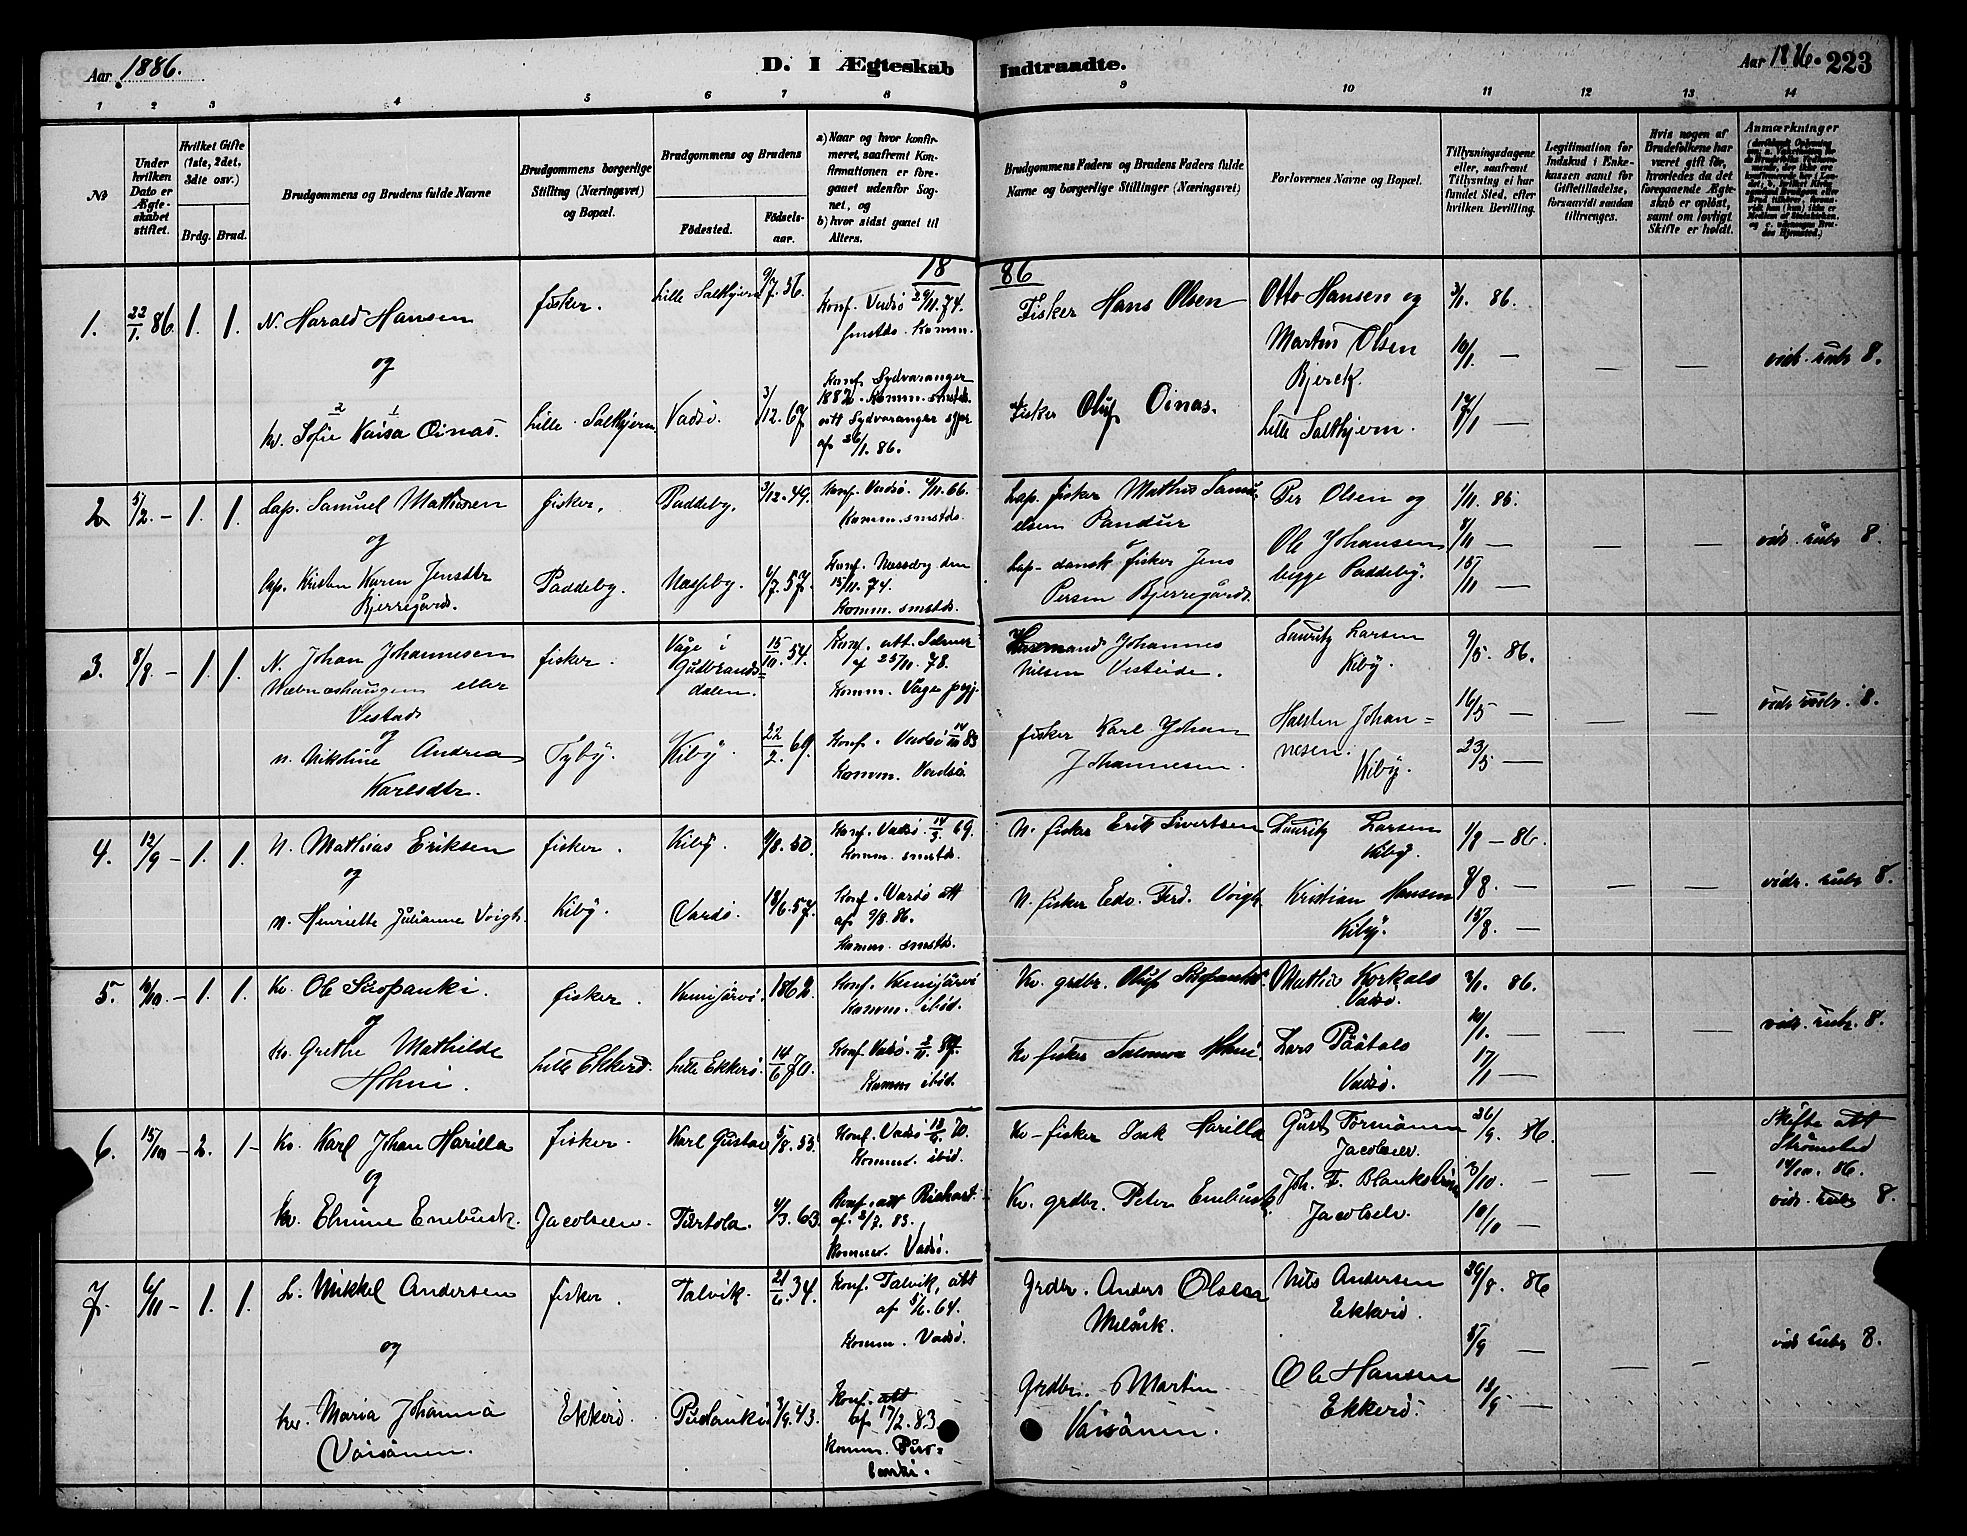 Aar 1886.
D. I Ægteskab
Indtraadte.
Aar 1886.
223
1 2 3 4 5 6 7 8 9 10 11 12 13 14
No
Under
hvilken
Dato er
Ægte-
skabet
stiftet.
Hvilket Gifte
(1ste, 2det,
3die osv.)
Brdg. Brud.
Brudgommens og Brudens fulde Navne
Brudgommens borgerlige
Stilling (Næringsvei)
og Bopæl.
Brudgommens og Brudens
Födested.
Födsels-
aar.
a) Naar og hvor konfir-
meret, saafremt Kon-
firmationen er fore-
gaaet udenfor Sog-
net, og
b) hvor sidst gaaet til
Alters.
Brudgommens Faders og Brudens Faders fulde
Navne og borgerlige Stillinger (Næringsvei)
Forlovernes Navne og Bopæl.
Tillysningsdagene
eller, saafremt
Tillysning ei har
fundet Sted, efter
hvilken Bevilling.
Legitimation for
Indskud i Enke-
kassen samt for
Giftetilladelse,
forsaavidt saadan
tiltrænges.
Hvis nogen af
Brudefolkene har
været gift för,
hvorledes da det
foregaaende Ægte-
skab er oplöst,
samt om lovligt
Skifte er holdt.
Anmærkninger
18 86
1. 22/1 86 1. 1. N. Harald Hansen
og
kv. Sofie Kaisa Oinas.
fisker.
Lille Salthjern
Lille Salthjern 9/7. 56.
Vadsö. 3/12. 67
Konf. Vadsö 29/11. 74.
smstds. Komm.
Konf. Sydvaranger
1882. Komm. smstds.
att Sydvaranger
af 26/1. 86.
Fisker Hans Olsen
Fisker Oluf Oinas.
Otto Hansen og
Martin Olsen
Bjerck.
Lille Salthjern.
3/1. 86.
10/1 —
17/1 —
vid. rubr 8.
2 5/2. — 1. 1. Lap. Samuel Mathisen
og
lap. Kristen Karen Jensdtr
Bjerregårds.
fisker.
Paddeby.
Paddeby. 3/12. 49.
Nasseby. 6/7. 57.
Konf. Vadsö. 4/11. 66.
Komm. smstds.
Konf. Nasseby den
15/11. 74.
Komm. smstds.
Lap. fisker Mathis Samu-
elsen Pandur
Lap- dansk fisker Jens
Persen Bjerregårds.
Per Olsen og
Ole Johansen
begge Paddeby.
1/11. 85.
8/11 —
15/11 —
vid. rubr 8.
3. 8/8. — 1. 1. N. Johan Johannesen
eller
Vestad
og
n. Nikoline Andrea
Karlsdtr.
fisker.
Tyby.
Våge i
Gudbrands=
dalen. 15/10. 54.
Kiby. 22/2. 69.
Konf. att.
23/11. 78.
Komm. Våge pgj.
Konf. Vadsö 14/10 83
Komm. Vardsö
Johannes
Nilsen
fisker Karl Johan
Johannesen.
Lauritz Larsen
Kiby.
Halsten Johan=
nesen.
Kiby.
9/5. 86.
16/5 —
23/5 —
vid. rubr. 8.
4. 12/9 — 1. 1. N. Mathias Eriksen
og
n. Henriette Julianne Voigt.
fisker.
Kiby.
Kiby. 8. 50.
Vardö. 13/6. 57.
Konf. Vadsö. 14/3. 69.
Komm. smstds.
Konf. Vardö att
af 9/8. 86.
Komm. smstds.
N. fisker Erik Sivertsen
N. fisker Edv. Ferd. Voigt
Lauritz Larsen
Kiby.
Kristian Hansen
Kiby.
1/8 — 86.
8/8. —
15/8. —
vidr. rubr 8.
5. 10/10. — 1. 1. Kv. Ole Suopanki.
og
kv. Grethe Mathilde
fisker.
Lille Ekkerö.
Kemijärvi. 1862.
Lille Ekkerö. 14/6 70.
Konf. Kemijärvi
Komm. ibid.
Konf. Vadsö.
Komm ibid.
Kv. grdbr. Oluf Suopanki.
Kv fisker Salomon
Mathis Korkals
Vadsö.
Lars Päätals
Vadsö.
3/1. 86.
10/1. —
17/1 —
vid. rubr. 8.
6. 15/10 — 2. 1 — Kv. Karl Johan Harilla
og
kv. Elmine Enebusk.
fisker.
Jacobselv.
Karl Gustav 5/8. 53.
Turtola. 4/3. 63.
Konf. Vadsö 70.
Komm. ibid.
Konf. att
af 2/8. 83.
komm. Vadsö.
Kv — fisker Harilla
Kv. grdbr. Peter Enebusk.
Gust Törmänen
Jacobselv.
Joh. F.
Jacobselv.
26/9. 86.
3/10. —
10/10 —
Skifte att
Strömsted
14/10. 86.
vid. rubr 8.
7. 6/11 — 1. 1. L. Mikkel Andersen
og
kv. Maria Johanna
Väisänen.
fisker.
Ekkerö.
Talvik. 21/6. 34.
Pudanki 3/9. 43.
Konf. Talvik, att
af 5/6. 64.
Komm. Vadsö.
Konf. att
af 17/2. 83
komm.
Grdbr. Anders Olsen
Grdbr. Martin
Väisänen.
Nils Andersen
Ekkerö
Ole Hansen
Ekkerö.
29/8. 86
5/9 —
12/9 —
vid rubr 8.